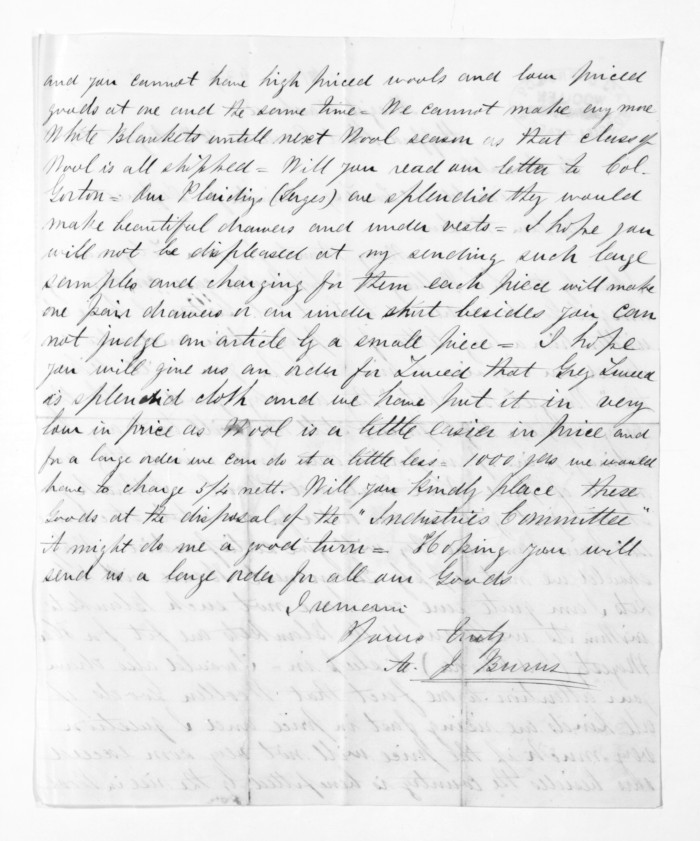 and you cannot have high priced wools and low priced
goods at one and the same time = We cannot make any more
White Blankets untill next Wool season as that class of
Wool is all shipped = Will you read our letter to Col.
Gorton = Our Plaidings (Serges) are splendid they would
make beautiful drawers and under vests = I hope you
will not be displeased at my sending such large
samples and charging for them each piece will make
one pair drawers or an under shirt besides you can
not judge an article by a small piece = I hope
you will give us an order for Tweed that Grey Tweed
is splendid cloth and we have put it in very
low in price as Wool is a little easier in price and
for a large order we can do it a little less = 1000 yds we would
have to charge 5/4 nett. Will you kindly place these
Goods at the disposal of the "Industries Committee"
it might do me a good turn = Hoping you will
send us a large order for all our Goods
I remain
Yours truly
A. J Burns